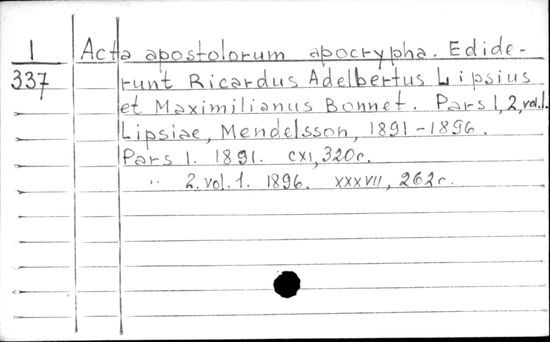 1
337
Acta apostolorum apocrypha. Edide-
runt Ricardus Adelbertus Lipsius
et Maximilianus Bonnet. Pars 1, 2, vol. 1.
Lipsiae, Mendelsson, 1891-1896.
Pars 1. 1891. CXI, 320 c.
" 2. vol. 1. 1896. XXXVII, 262 c.